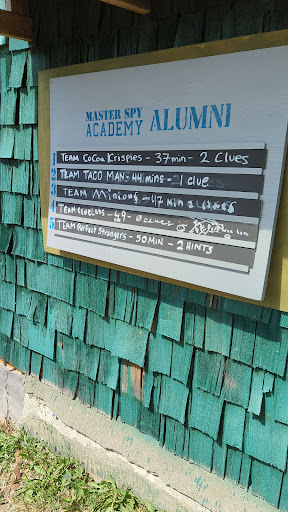 MASTER SPY
ACADEMY ALUMNI
1 TEAM COCOA KRISPIES - 37 min - 2 Clues
2 TEAM TACO MAN - 44 mins - 1 clue
3 TEAM Minions - 47 min
4 TEAM - 49 -
5 TEAM Perfect Strangers - 50 MIN - 2 HINTS